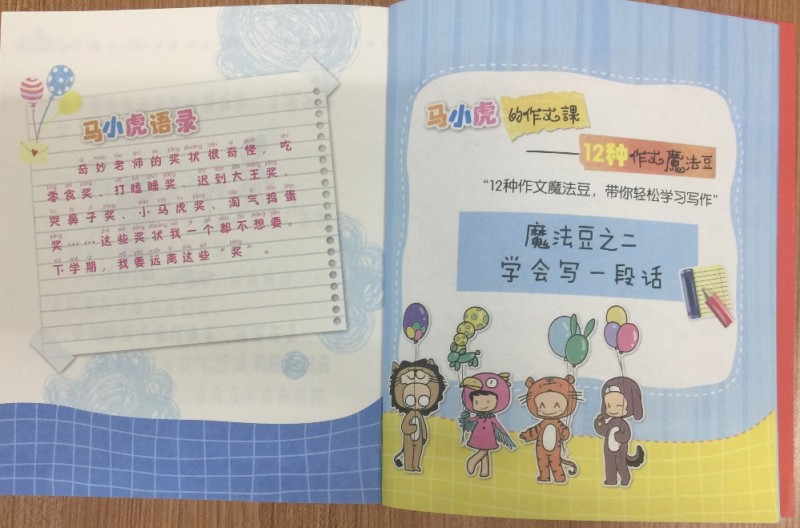 马小虎语录
奇妙老师的奖状很奇怪，吃
零食奖、打瞌睡奖、迟到大王奖、
哭鼻子奖、小马虎奖、淘气捣蛋
奖……这些奖状我一个都不想要。
下学期，我要远离这些“奖”。
马小虎的作文課
——12种作文魔法豆
“12种作文魔法豆，带你轻松学习写作”
魔法豆之二
学会写一段话